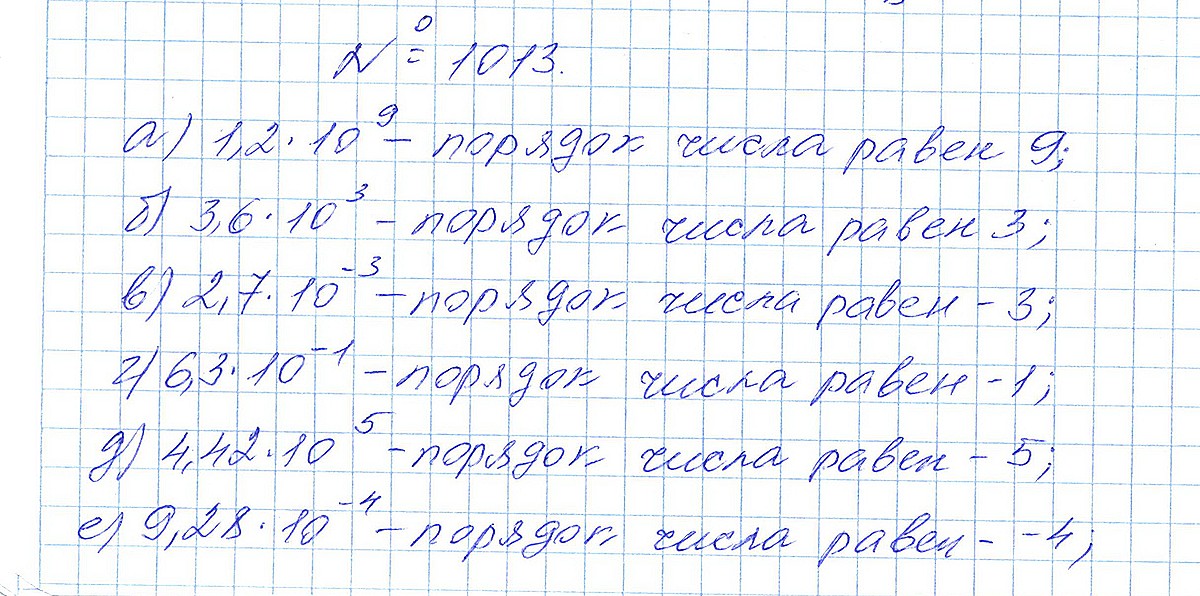 № 1013.
а) 1,2·10⁹ – порядок числа равен 9;
б) 3,6·10³ – порядок числа равен 3;
в) 2,7·10⁻³ – порядок числа равен -3;
г) 6,3·10⁻¹ – порядок числа равен -1;
д) 4,42·10⁵ – порядок числа равен - 5;
е) 9,28·10⁻⁴ – порядок числа равен - -4;